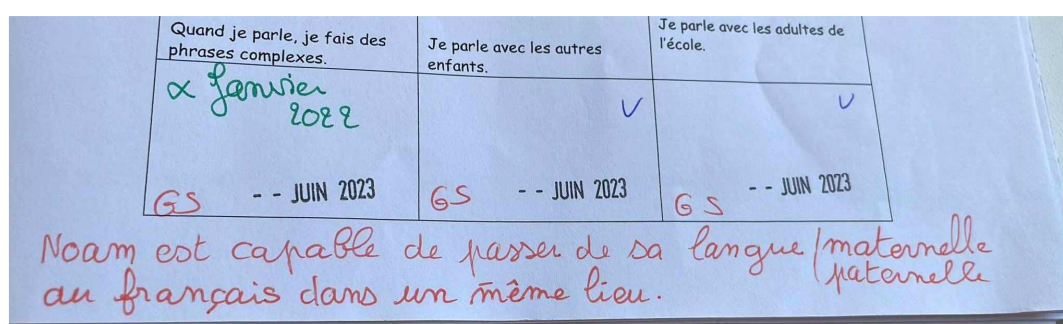 Quand je parle, je fais des
phrases complexes.
Je parle avec les autres
enfants.
Je parle avec les adultes de
l'école.
∝ Janvier
2022
V
V
GS -- JUIN 2023
GS -- JUIN 2023
GS -- JUIN 2023
Noam est capable de passer de sa langue / maternelle
paternelle
au français dans un même lieu.